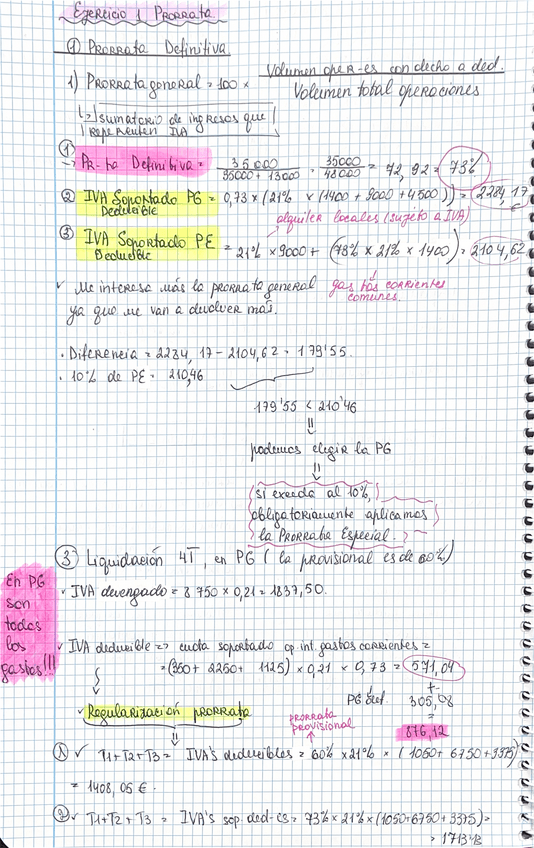 Ejercicio 1 Prorrata
① Prorrata Definitiva
1) Prorrata general = 100 × Volumen oper-es con decho a ded. / Volumen total operaciones
↳ sumatorio de ingresos que repercuten IVA
①
→ Pr-ta Definitiva = 35000 / 35000 + 13000 = 35000 / 48000 = 72,92 = 73%
② IVA Soportado PG = 0,73 × (21% × (1400 + 9000 + 4500)) = 2284,17 €
Deducible
alquiler locales (sujeto a IVA)
③ IVA Soportado PE = 21% × 9000 + (73% × 21% × 1400) = 2104,62
Deducible
✓ Me interesa más la prorrata general
gastos corrientes
comunes.
ya que me van a devolver más.
· Diferencia = 2284,17 - 2104,62 = 179'55.
· 10% de PE = 210,46
179'55 < 210'46
podemos elegir la PG
si exceda al 10%,
obligatoriamente aplicamos
la Prorrata Especial.
③ Liquidación 4T, en PG (la provisional es de 60%)
En PG
son
todos
los
gastos!!!
✓ IVA devengado = 8750 × 0,21 = 1837,50.
✓ IVA deducible => cuota soportado op. int. gastos corrientes =
= (350 + 2250 + 1125) × 0,21 × 0,73 = 571,04
+
PG def. 305,08
=
876,12
✓ Regularización prorrata
prorrata
provisional
1) ✓ T1+T2+T3 = IVA's deducibles = 60% × 21% × (1050 + 6750 + 3375)
= 1408,05 €.
2) ✓ T1+T2+T3 = IVA's sop. ded-es = 73% × 21% × (1050+6750+3375) =
= 1713'13